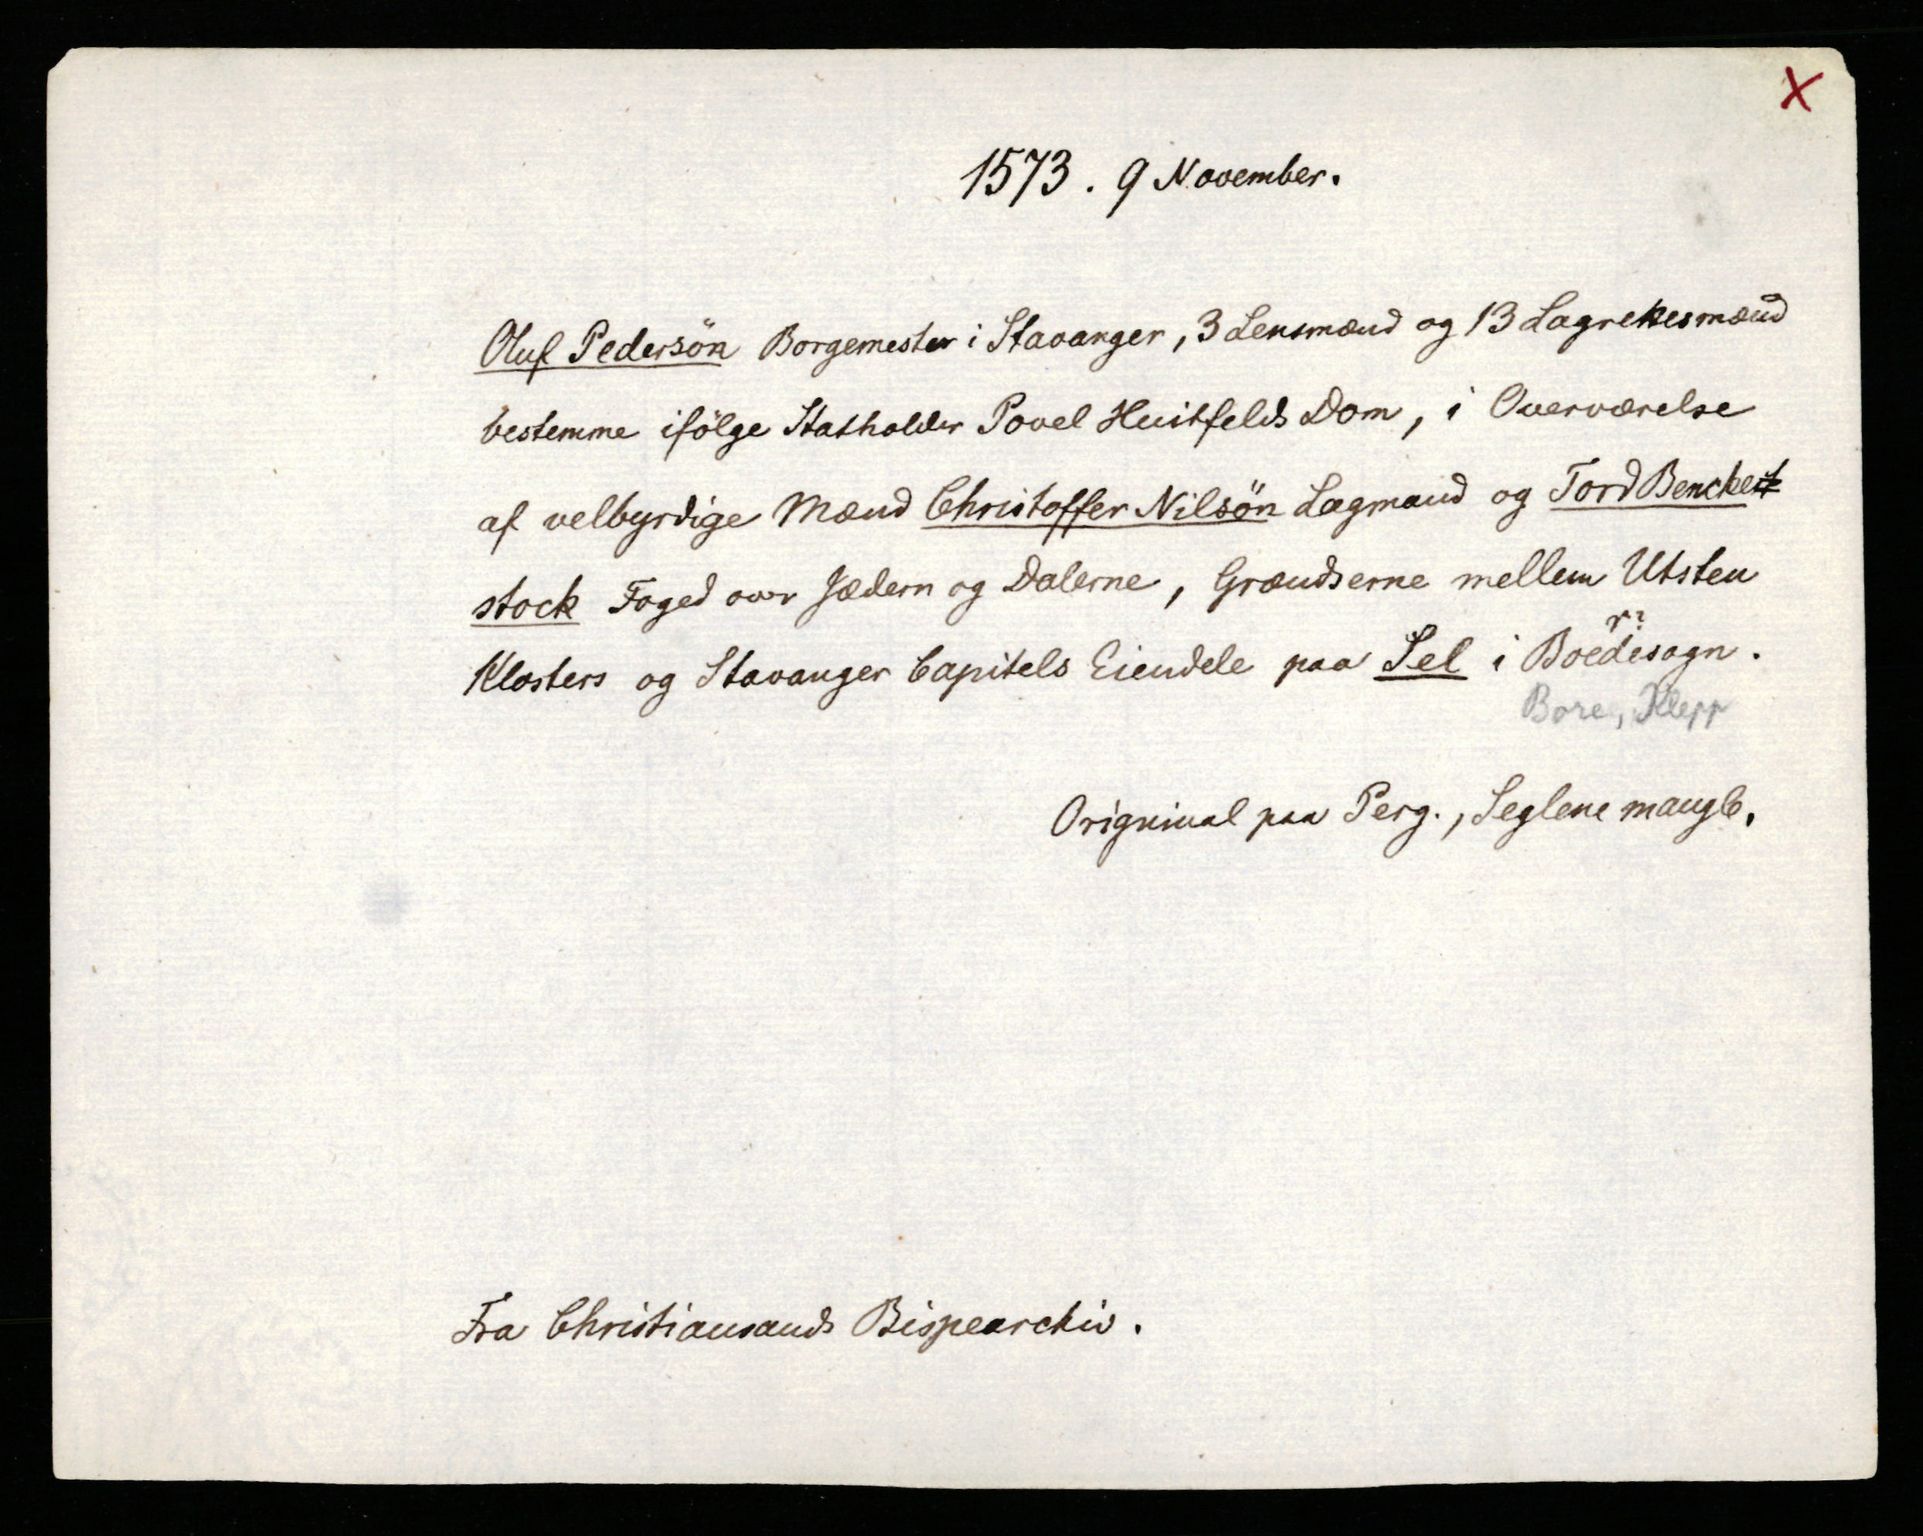 X
1573. 9 November.
Oluf Pedersön Borgemester i Stavanger, 3 Lensmænd og 13 Lagrettesmænd
bestemme ifölge Statholder Povel Huitfelds Dom, i Overværelse
af velbyrdige Mænd Christoffer Nilsön Lagmand og Tord Bencke
stock Foged over Jædern og Dalerne, Grændserne mellem Utsten
Klosters og Stavanger Capitels Eiendele paa Sel i Boedesogn.
r?
Bore, Klepp
Origninal paa Perg., Seglene mangle.
Fra Christiansands Bispearchiv.